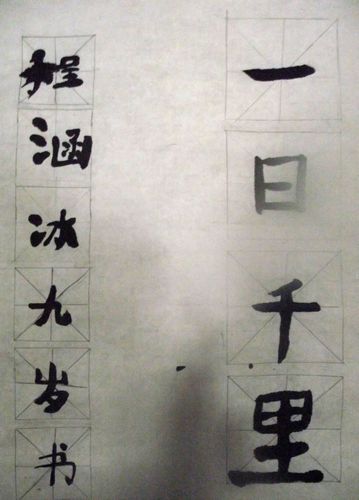 一日千里
程涵冰九岁书